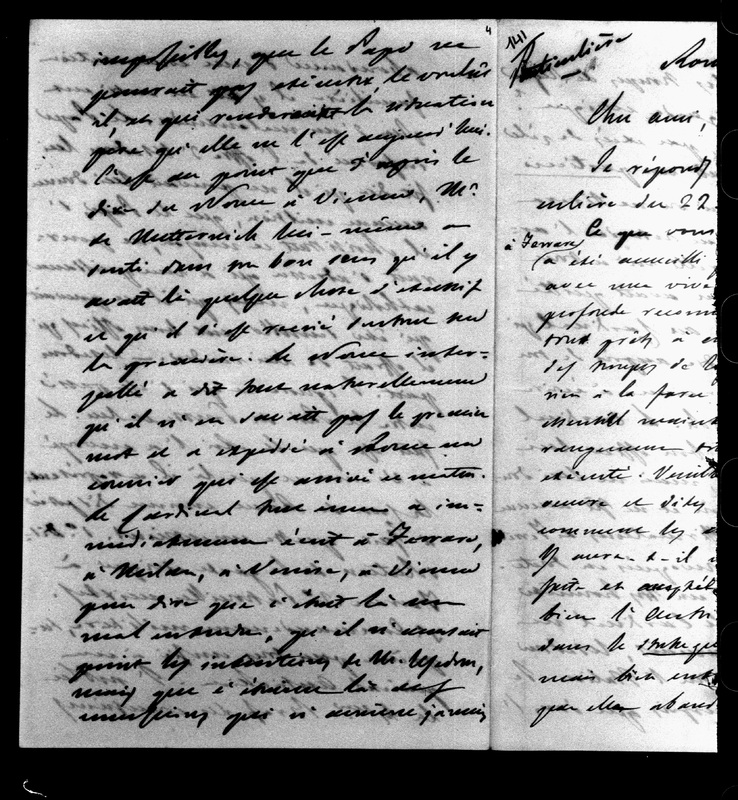 4
impossibles, que le Pape ne
pourrait pas exécuter, le voulût
il, et qui rendraient la situation
pire qu'elle ne l'est aujourd'hui.
C'est au point que d'après le
dire du Nonce à Vienne, Mr.
de Metternich lui-même a
senti dans son bon sens qu'il y
avait là quelque chose d'excessif
et qu'il s'est récrié surtout sur
la première. Le Nonce inter-
pellé a dit tout naturellement
qu'il n'en savait pas le premier
mot et a expédié à Rome un
courrier qui est arrivé ce matin.
Le Cardinal tout ému a im-
médiatement écrit à Ferrare,
à Milan, à Venise, à Vienne
pour dire que c'était là un
mal entendu, qu'il n'accusait
point les intentions de Mr. Usedom,
mais que c'étaient là des
conditions qui n'avaient jamais
141
Particulière
Rom
Cher ami,
Je réponds
culière du 22
Ce que vous
à Ferrare
a été accueilli
avec une vive
profonde reconn
tout prêts à
des troupes de
rien à la force
maint
rangement
exécuté.
œuvre et dites
comment les
Y aura-t-il
faite et
bien l'Autri
dans le statu quo
mais bien ent
que elles aband